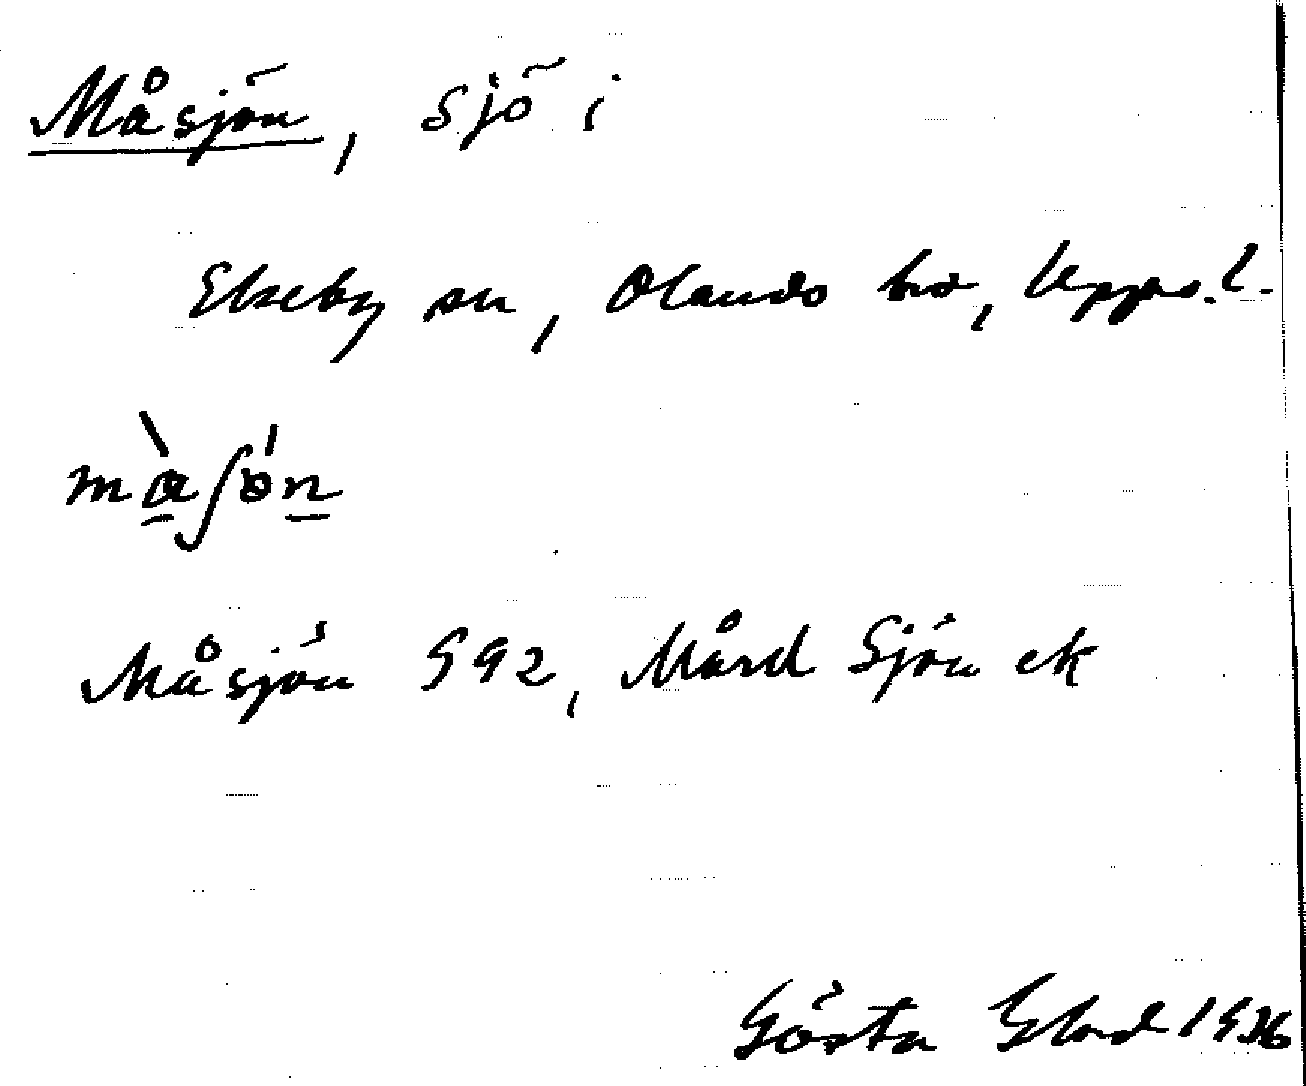 Måsjön, sjö i
Ekeby sn, Olands hd, Upps. l.
Måsjön 592, Mård Sjön ek
Gösta 1936